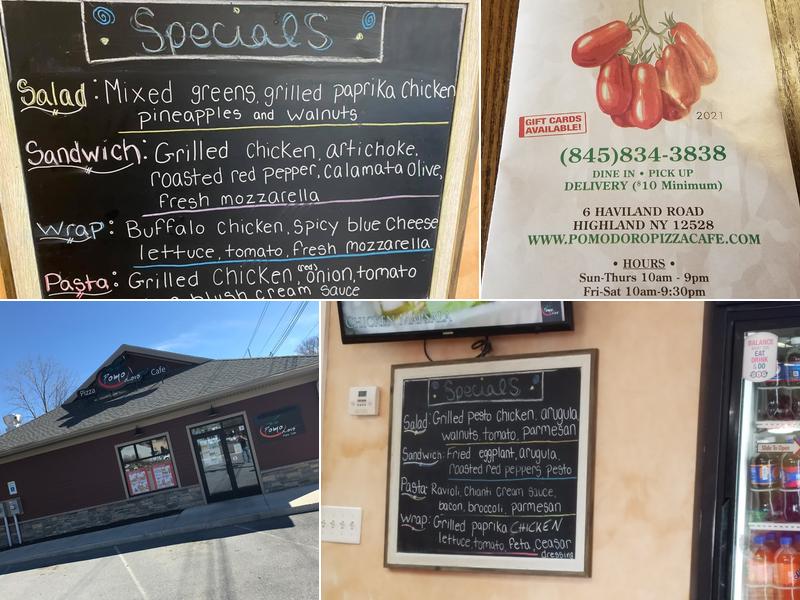 Specials
Salad: Mixed greens, grilled paprika chicken
pineapples and walnuts
Sandwich: Grilled chicken, artichoke,
roasted red pepper, calamata olive,
fresh mozzarella
Wrap: Buffalo chicken, spicy blue cheese
lettuce, tomato, fresh mozzarella
Pasta: Grilled Chicken, (red) onion, tomato
blush cream sauce
2021
GIFT CARDS
AVAILABLE!
(845)834-3838
DINE IN • PICK UP
DELIVERY ($10 Minimum)
6 HAVILAND ROAD
HIGHLAND NY 12528
WWW.POMODOROPIZZACAFE.COM
• HOURS •
Sun-Thurs 10am - 9pm
Fri-Sat 10am-9:30pm
Pizza Pomo Doro Cafe
Pomo Doro
CHICKEN MARSALA
Specials
Salad: Grilled pesto chicken, arugula,
walnuts, tomato, parmesan
Sandwich: Fried eggplant, arugula,
roasted red peppers, pesto
Pasta: Ravioli, Chianti cream sauce,
bacon, broccoli, parmesan
Wrap: Grilled paprika CHICKEN
lettuce, tomato, feta, ceasar
dressing
BALANCE
WHAT YOU
EAT
DRINK
& DO
Slide To Open